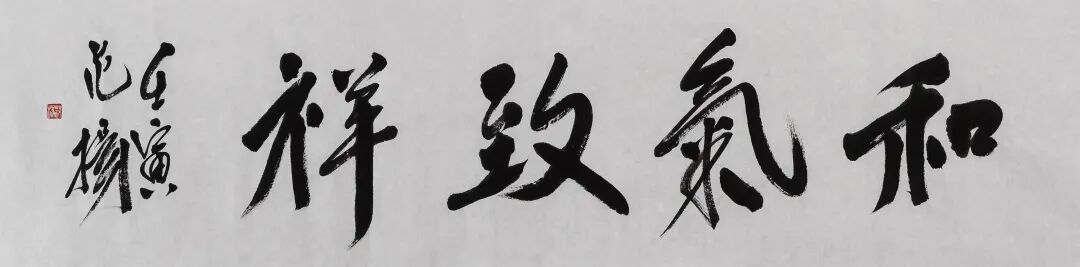 和氣致祥
壬寅
范揚